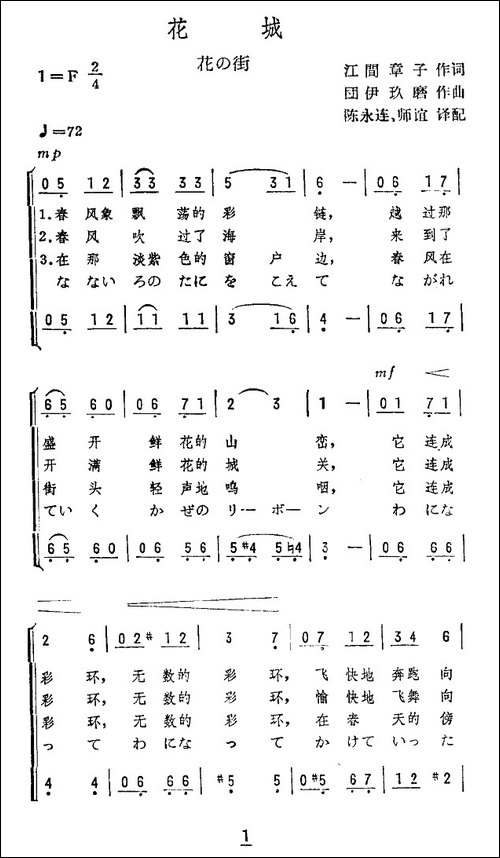 花 城
花の街
1=F 2/4
江間章子 作词
団伊玖磨 作曲
陈永连、师谊 译配
♩=72
mp
0 5 1 2 | 3 3 3 3 | 5 3 1 | 6 — | 0 6 1 7 |
1.春 风象 飘 荡的 彩 链, 越 过那
2.春 风 吹 过了 海 岸, 来 到了
3.在 那 淡紫 色的 窗 户 边, 春 风在
な ないろ のたに を こえ て な がれ
0 5 1 2 | 1 1 1 1 | 3 1 6 | 4 — | 0 6 1 7 |
mf
6 5 6 0 | 0 6 7 1 | 2 3 | 1 — | 0 1 7 1 |
盛 开 鲜 花的 山 峦, 它 连成
开 满 鲜 花的 城 关, 它 连成
街 头 轻 声地 呜 咽, 它 连成
てい く か ぜの リーボー ン わ にな
6 5 6 0 | 0 6 5 6 | 5 #4 5 ♮4 | 3 — | 0 6 6 6 |
2 6 | 0 2 #1 2 | 3 7 | 0 7 1 2 | 3 4 6 |
彩 环, 无 数的 彩 环, 飞 快地 奔跑 向
彩 环, 无 数的 彩 环, 愉 快地 飞舞 向
彩 环, 无 数的 彩 环, 在 春 天的 傍
っ て わ にな っ て か けて いっ た
4 4 | 0 6 6 6 | #5 5 | 0 #5 6 7 | 1 2 #2 |
1